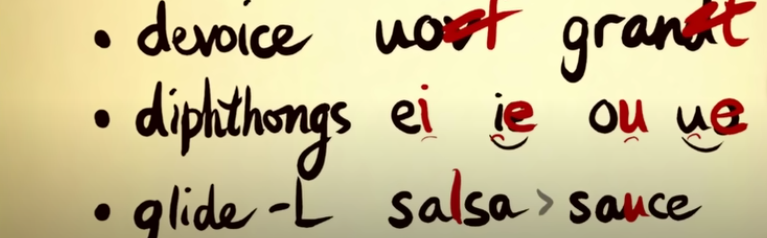 • devoice grant
• diphthongs ei ie ou ue
• glide -L salsa > sauce